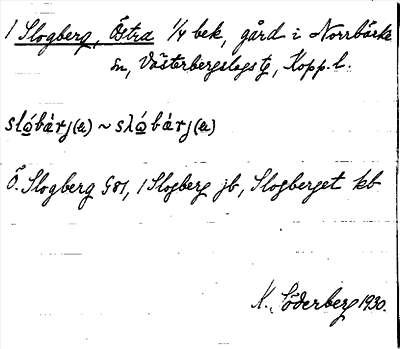 1 Slogberg, Östra 1/4 bek, gård i Norrbärke
sn, Västerbergslags tg, Kopp. l.
slo̱bàrj(a) ~ slo̱bàrj(a)
Ö. Slogberg GS1, 1 Slogberg jb, Slogberget kb
K. Söderberg 1930.